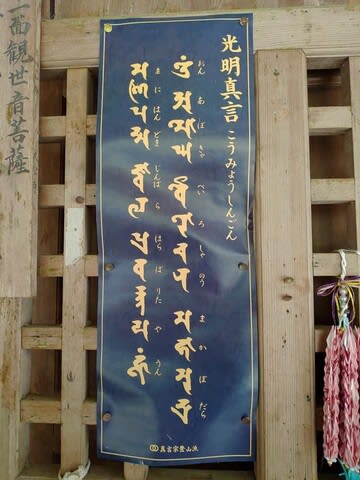 光明真言 こうみょうしんごん
おん あぼ きゃ べい ろ しゃ のう ま か ぼ だら
𑖌𑖼 𑖀𑖦𑖺𑖑 𑖪𑖹𑖨𑖺𑖓𑖡 𑖦𑖮𑖯𑖦𑖲𑖟𑖿𑖨𑖯
まに はん どま じんば ら はら ばり た や うん
𑖦𑖜𑖰 𑖢𑖟𑖿𑖦 𑖕𑖿𑖪𑖩 𑖢𑖿𑖨𑖪𑖨𑖿𑖝𑖧 𑖮𑖳𑖽
真言宗豊山派
一面観世音菩薩